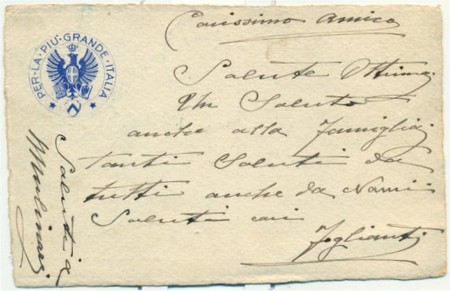 PER·LA·PIÙ·GRANDE·ITALIA
Carissimo amico
Salute Ottima
Un Saluto
anche alla famiglia
tanti Saluti da
tutti anche da
Saluti cari
Saluti a